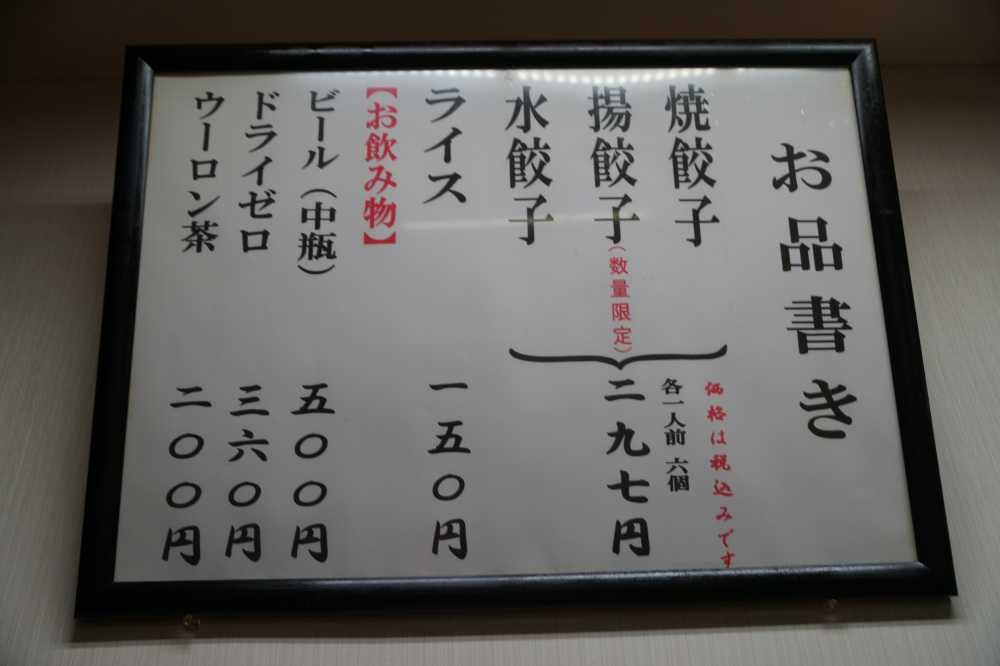 お品書き
価格は税込みです
焼餃子
揚餃子(数量限定)
水餃子
各一人前 六個
二九七円
ライス 一五〇円
【お飲み物】
ビール(中瓶) 五〇〇円
ドライゼロ 三六〇円
ウーロン茶 二〇〇円